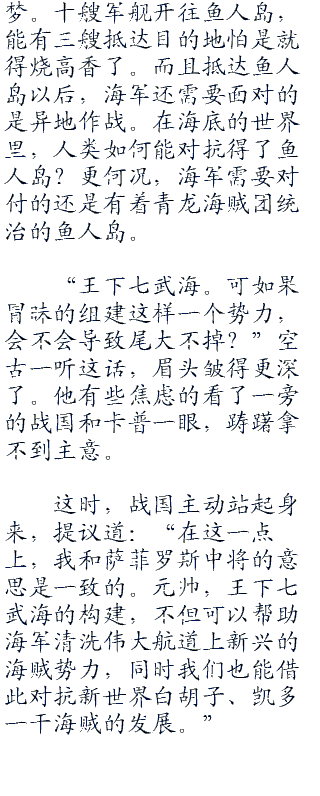 梦。十艘军舰开往鱼人岛，
能有三艘抵达目的地怕是就
得烧高香了。而且抵达鱼人
岛以后，海军还需要面对的
是异地作战。在海底的世界
里，人类如何能对抗得了鱼
人岛？更何况，海军需要对
付的还是有着青龙海贼团统
治的鱼人岛。
“王下七武海。可如果
冒昧的组建这样一个势力，
会不会导致尾大不掉？”空
古一听这话，眉头皱得更深
了。他有些焦虑的看了一旁
的战国和卡普一眼，踌躇拿
不到主意。
这时，战国主动站起身
来，提议道：“在这一点
上，我和萨菲罗斯中将的意
思是一致的。元帅，王下七
武海的构建，不但可以帮助
海军清洗伟大航道上新兴的
海贼势力，同时我们也能借
此对抗新世界白胡子、凯多
一干海贼的发展。”